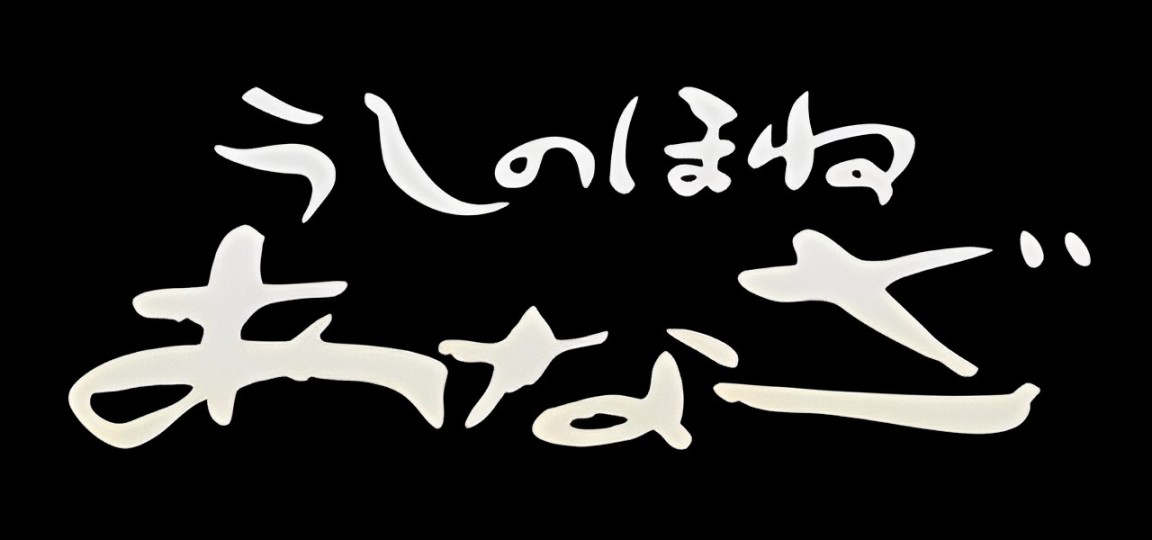 うしのほね
あなざ